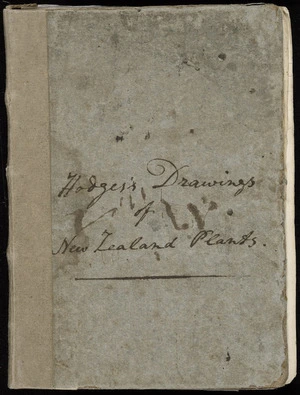 Hodges's Drawings
of
New Zealand Plants.